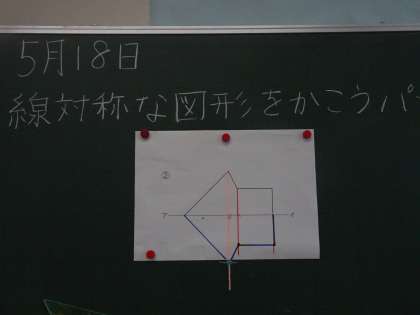 5月18日
線対称な図形をかこうパ
②